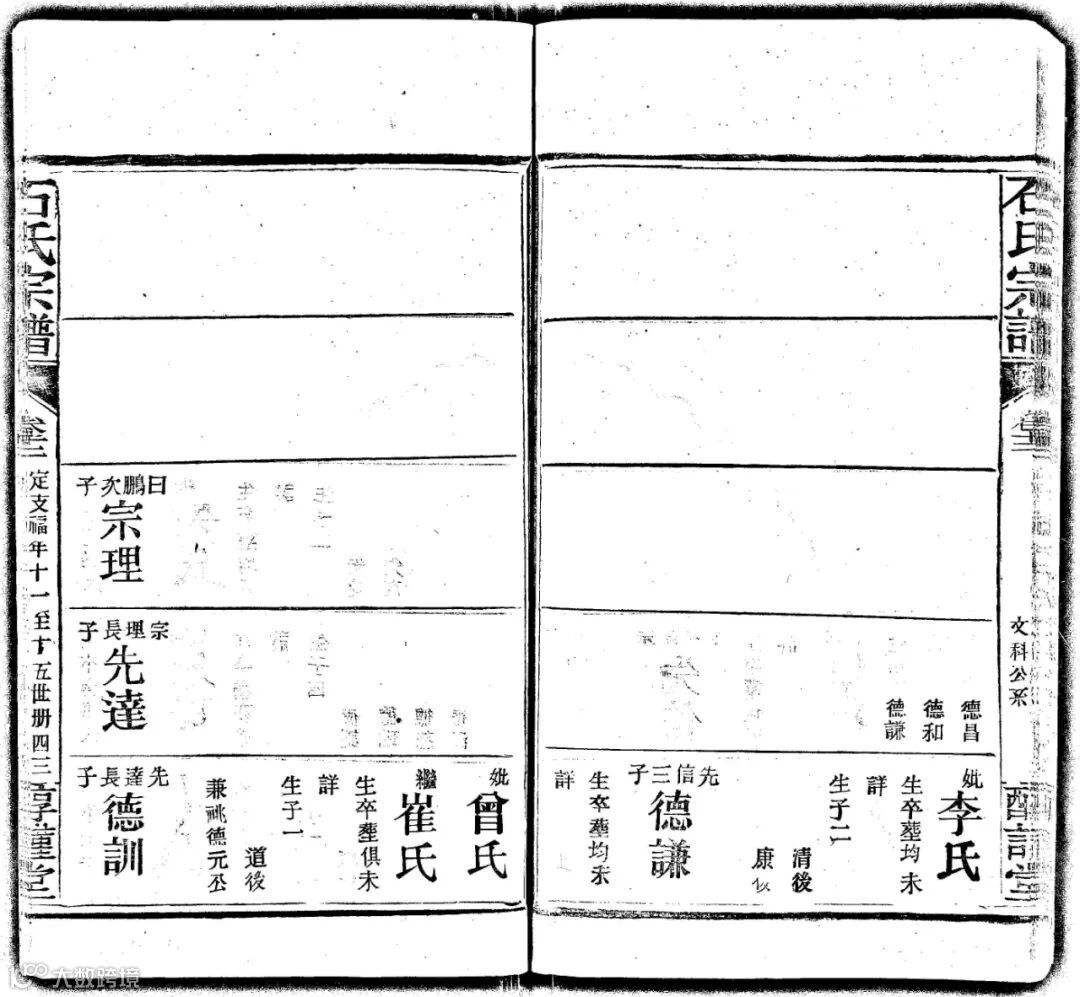 石氏宗譜
文科公系
德昌
德和
德謙
妣李氏
生卒塟均未
詳
生子二
清後
康後
先信三子
德謙
生卒塟均未
詳
曰鵬次子
宗理
宗理長子
先達
妣曾氏
繼崔氏
生卒塟俱未
詳
生子一
道後
兼祧德元公
先達長子
德訓
石氏宗譜
定支福年十一至十五世册四三
大数跨境